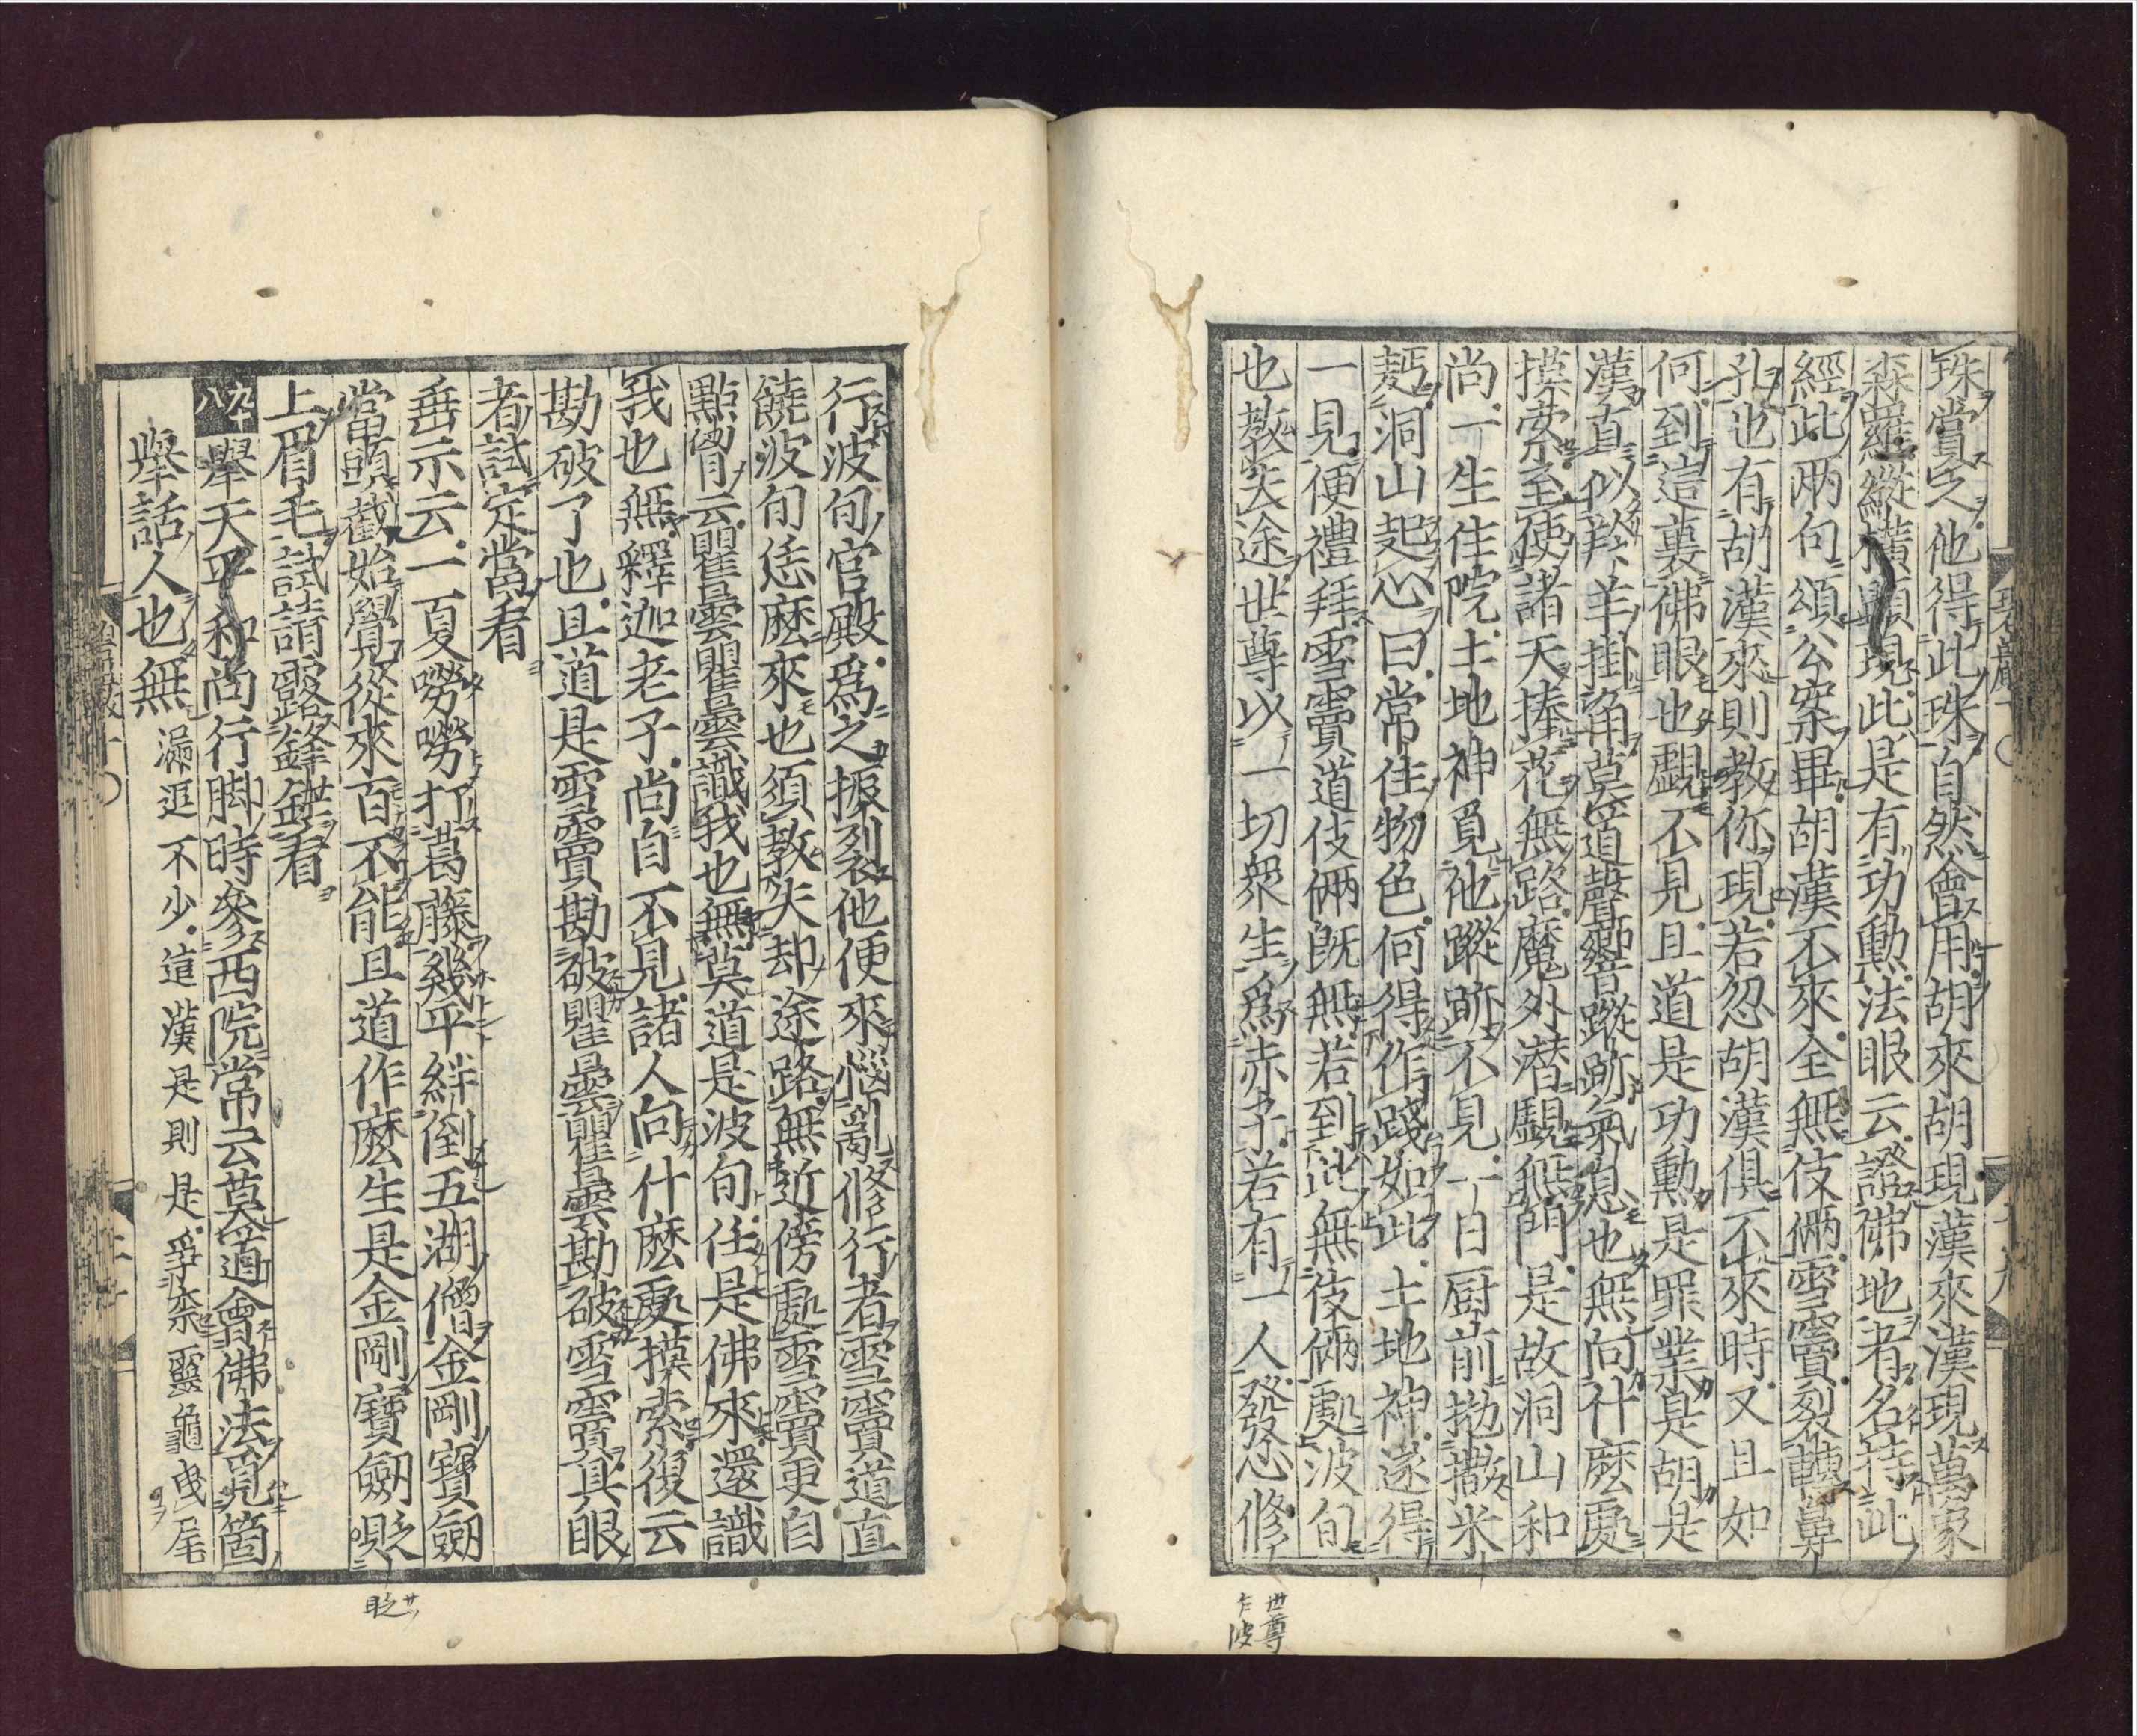 珠賞之他得此珠自然會用胡來胡現漢來漢現萬象
森羅縱橫顯現此是有功勳法眼云證佛地者名持此
經此兩句頌公案畢胡漢不來全無伎倆雪竇裂轉鼻
孔也有胡漢來則教你現若忽胡漢俱不來時又且如
何到這裏佛眼也覷不見且道是功勳是罪業是胡是
漢直似羚羊掛角莫道聲響蹤跡氣息也無向什麼處
摸索至使諸天捧花無路魔外潛覷無門是故洞山和
尚一生住院土地神覓他蹤跡不見一日厨前抛撒米
麪洞山起心曰常住物色何得作踐如此土地神遂得
一見便禮拜雪竇道伎倆既無若到此無伎倆處波旬
也教失途世尊以一切衆生爲赤子若有一人發心修
世尊
乍波
行波旬宮殿爲之振裂他便來惱亂修行者雪竇道直
饒波旬恁麼來也須教失却途路無近傍處雪竇更自
點胷云瞿曇瞿曇識我也無莫道是波旬任是佛來還識
我也無釋迦老子尚自不見諸人向什麼處摸索復云
勘破了也且道是雪竇勘破瞿曇瞿曇勘破雪竇具眼
者試定當看
垂示云一夏嘮嘮打葛藤幾乎絆倒五湖僧金剛寶劒
當頭截始覺從來百不能且道作麼生是金剛寶劒貶
上眉毛試請露鋒鋩看
九十八 舉天平和尚行脚時參西院常云莫道會佛法覓箇
舉話人也無 漏逗不少這漢是則是爭奈靈龜曳尾
眨